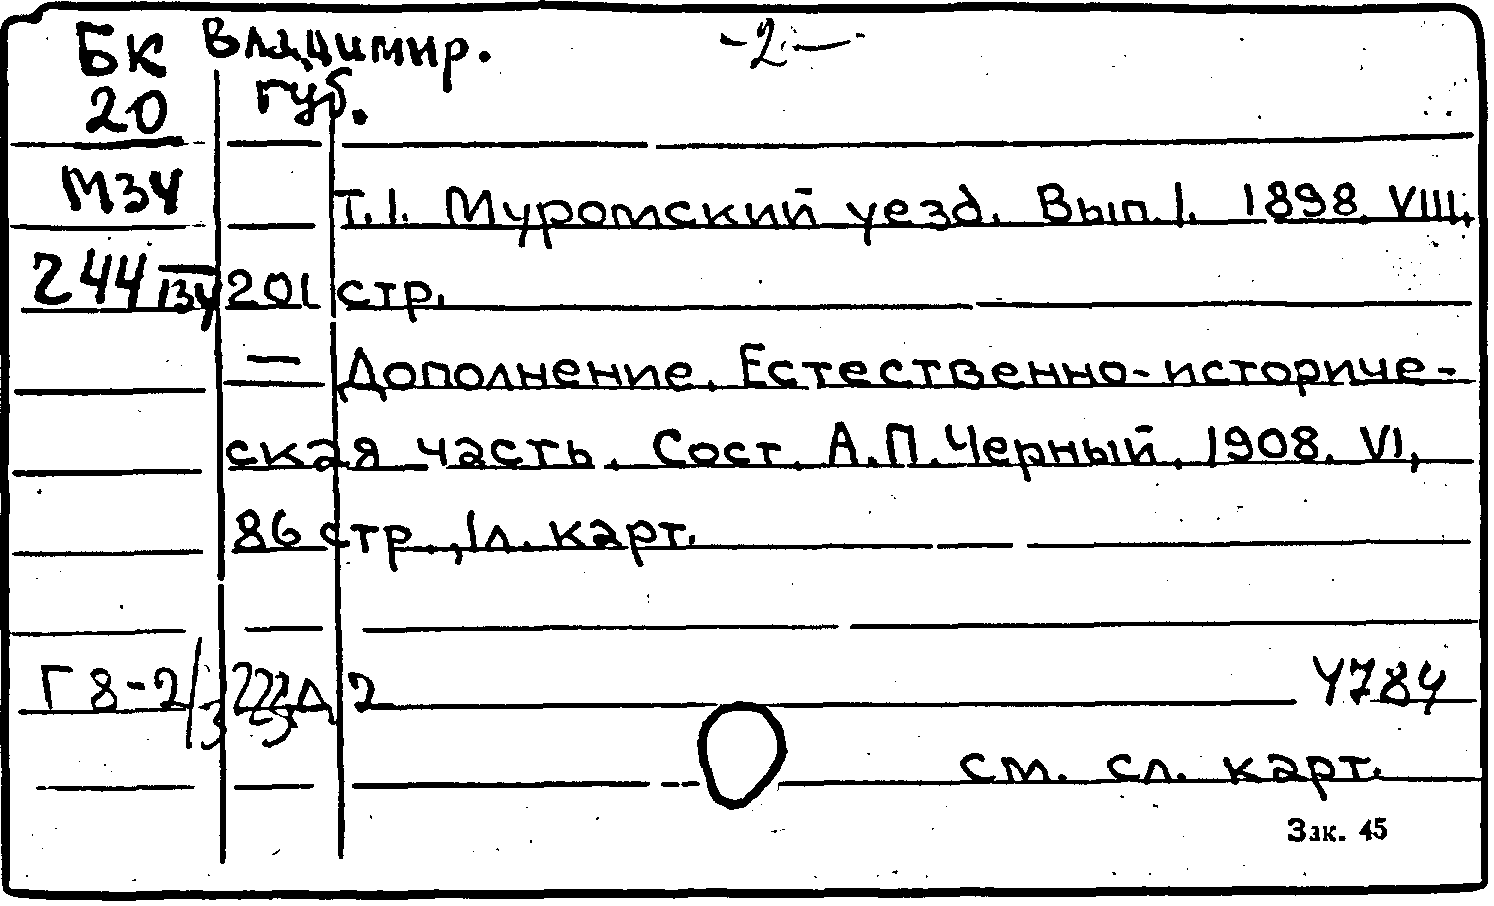 БК Владимир. -2-
20 губ.
МЗУ Т.1. Муромский уезд. Вып.1. 1898. VIII,
244 201 стр.
— Дополнение. Естественно-историче-
ская часть. Сост. А.П.Черный. 1908. VI,
86 стр., 1л. карт.
Г 8-2/3 Д 2 У784
см. сл. карт.
Зак. 45